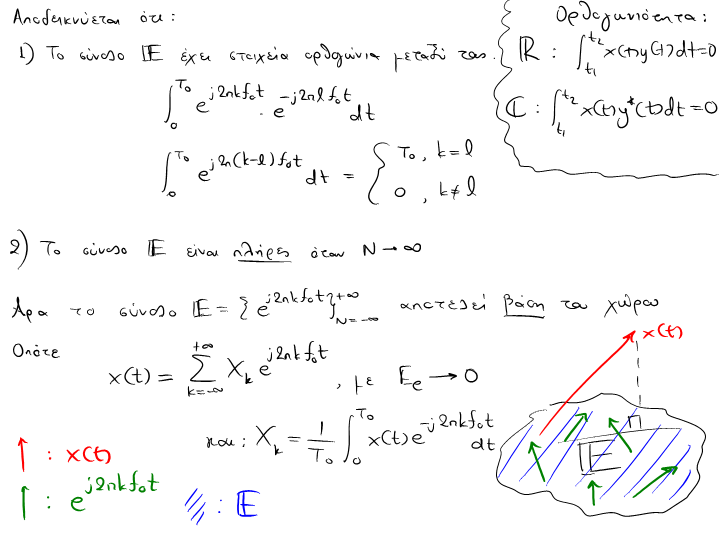 Αποδεικνύεται ότι:
1) Το σύνολο 𝔼 έχει στοιχεία ορθογώνια μεταξύ τους.
∫₀^{T₀} e^{j2πkf₀t} · e^{-j2πlf₀t} dt
∫₀^{T₀} e^{j2π(k-l)f₀t} dt = { T₀, k=l
0, k≠l
Ορθογωνιότητα:
ℝ: ∫_{t₁}^{t₂} x(t)y(t)dt=0
ℂ: ∫_{t₁}^{t₂} x(t)y*(t)dt=0
2) Το σύνολο 𝔼 είναι πλήρες όταν N→∞
Άρα το σύνολο 𝔼 = {e^{j2πkf₀t}}_{N=-∞}^{+∞} αποτελεί βάση του χώρου
Οπότε
x(t) = Σ_{k=-∞}^{+∞} X_k e^{j2πkf₀t}, με E_e → 0
και: X_k = 1/T₀ ∫₀^{T₀} x(t) e^{-j2πkf₀t} dt
↑ : x(t)
↑ : e^{j2πkf₀t}
: 𝔼
x(t)
𝔼